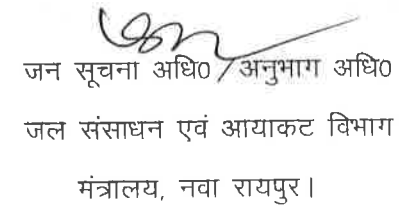 जन सूचना अधि0 / अनुभाग अधि0
जल संसाधन एवं आयाकट विभाग
मंत्रालय, नवा रायपुर।